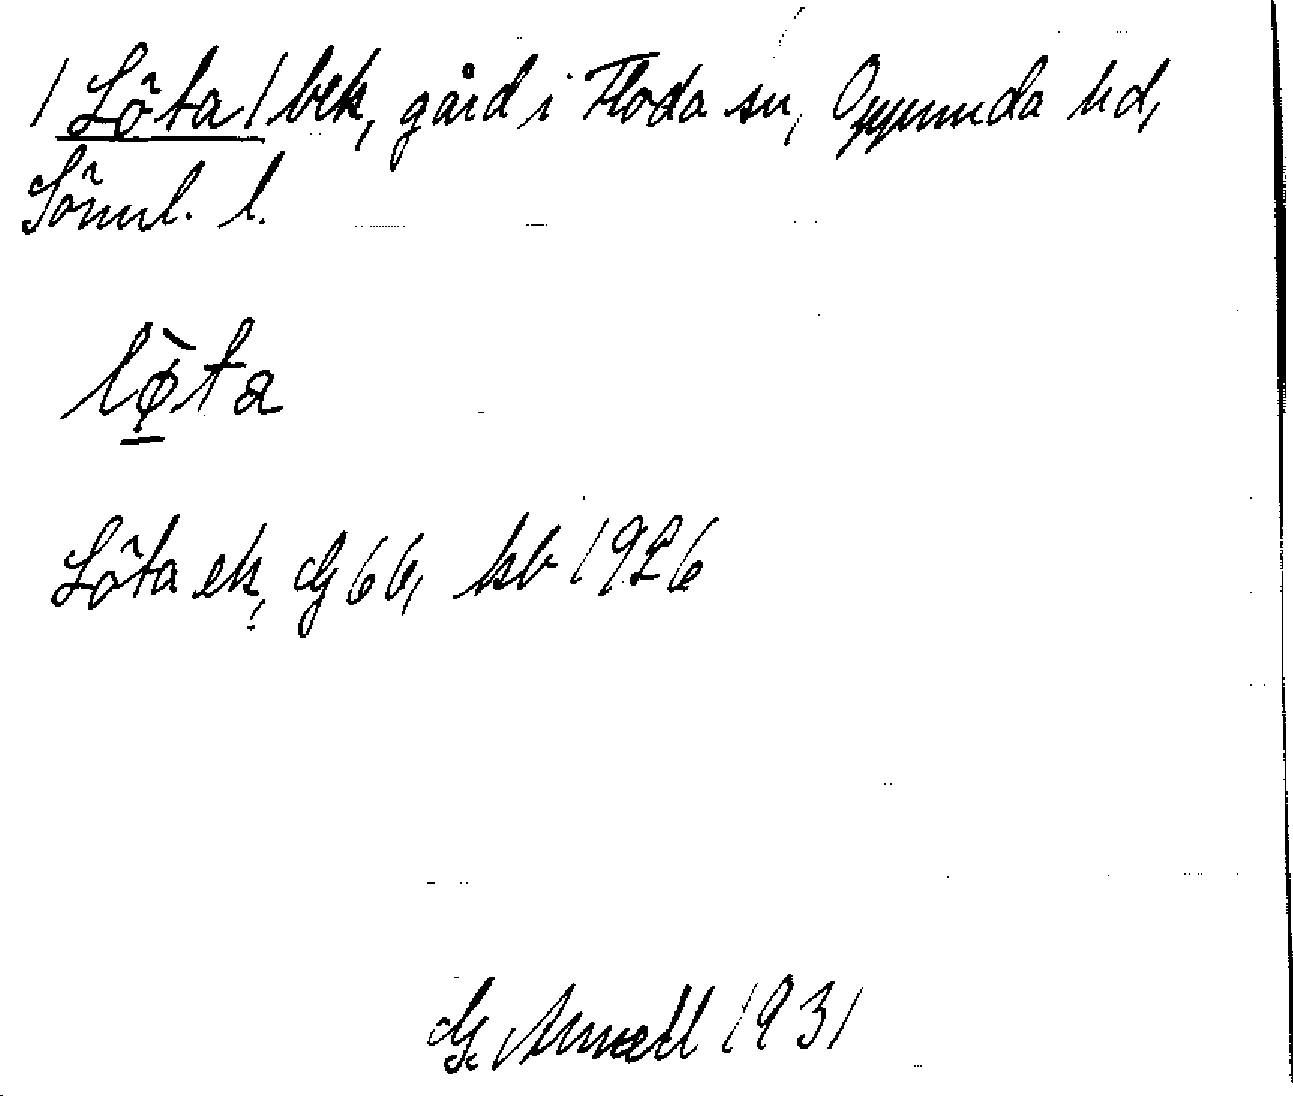 / Löta / bek, gård i Floda sn, Oppunda hd,
Sörml. l.
lø̀ta
Löta ek, G 66, kb 1926
G. Arnell 1931